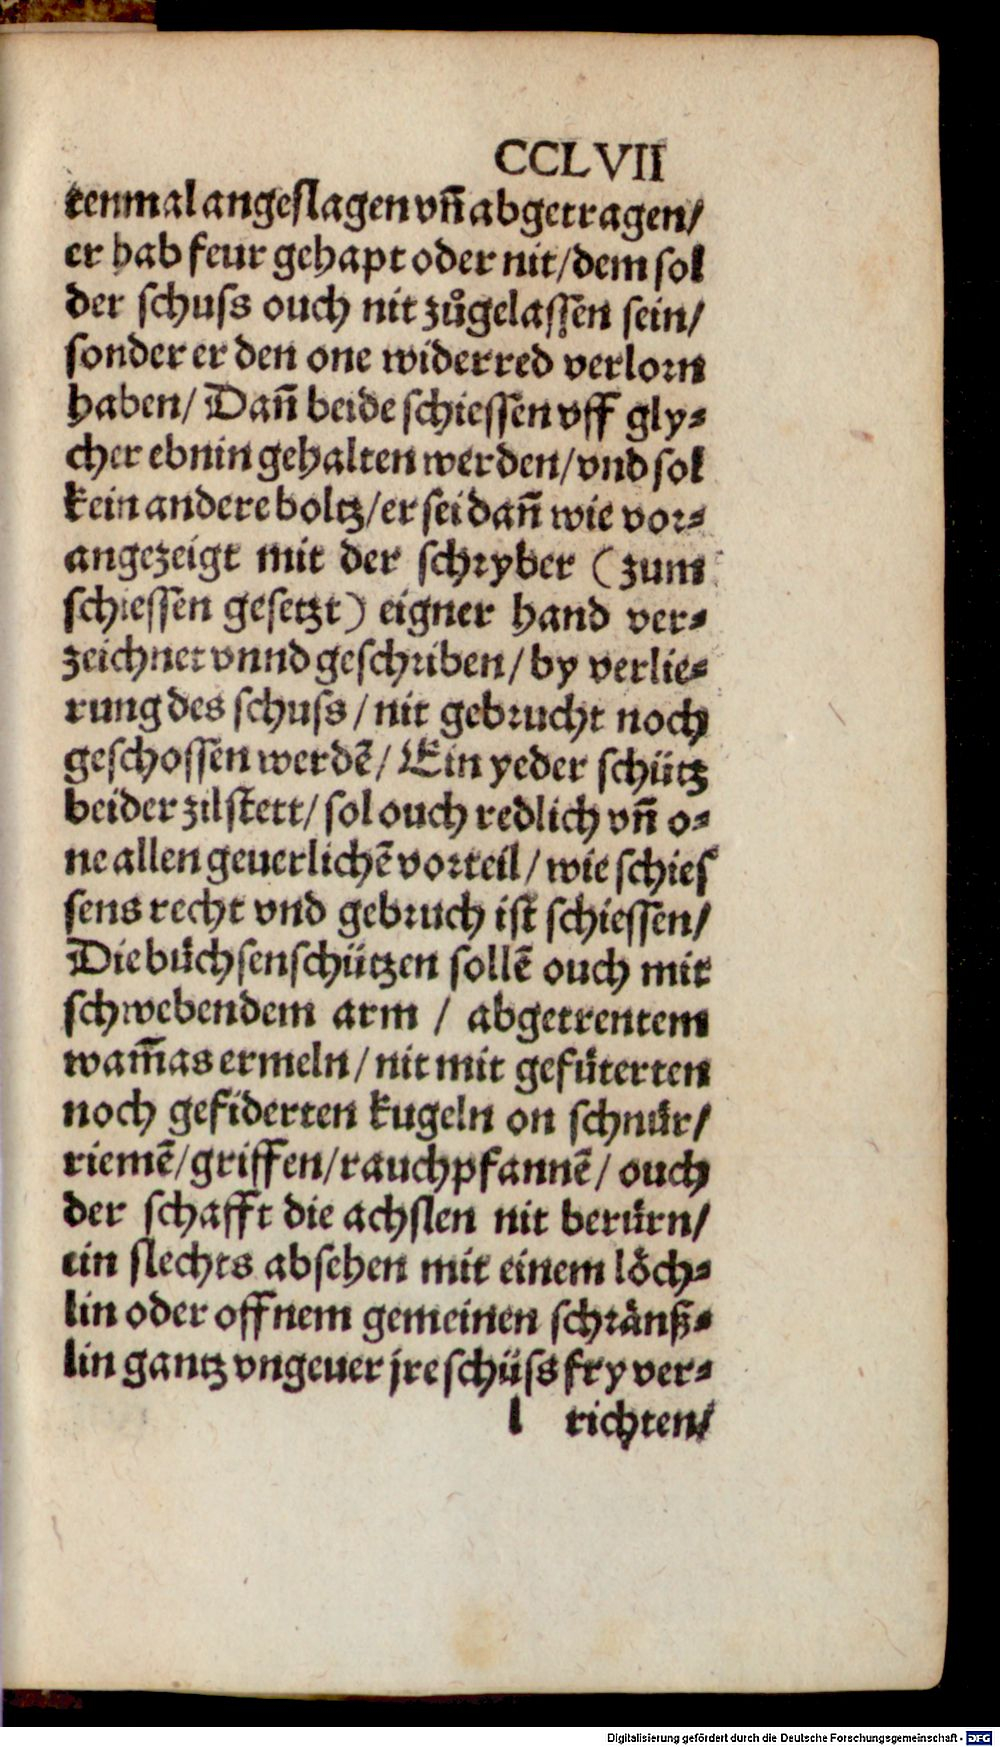 CCLVII
tenmal angeslagen vñ abgetragen/
er hab feur gehapt oder nit/dem sol
der schuss ouch nit zůgelassen sein/
sonder er den one widerred verlorn
haben/ Dañ beide schiessen vff gly⸗
cher ebnin gehalten werden/vnd sol
kein andere boltz/er sei dañ wie vor⸗
angezeigt mit der schryber (zum
schiessen gesetzt) eigner hand ver⸗
zeichnet vnnd geschriben/ by verlie⸗
rung des schuss/nit gebrucht noch
geschossen werdē/ Ein yeder schütz
beider zilstett/ sol ouch redlich vñ o⸗
ne allen geuerlichē vorteil/ wie schies
sens recht vnd gebruch ist schiessen/
Die büchsenschützen sollē ouch mit
schwebendem arm / abgetrentem
wam̄as ermeln/nit mit gefüterten
noch gefiderten kugeln on schnür/
riemē/griffen/rauchpfannē/ ouch
der schafft die achslen nit berürn/
ein slechts absehen mit einem löch⸗
lin oder offnem gemeinen schränß⸗
lin gantz vngeuer jre schüss fry ver⸗
l richten/
Digitalisierung gefördert durch die Deutsche Forschungsgemeinschaft - DFG